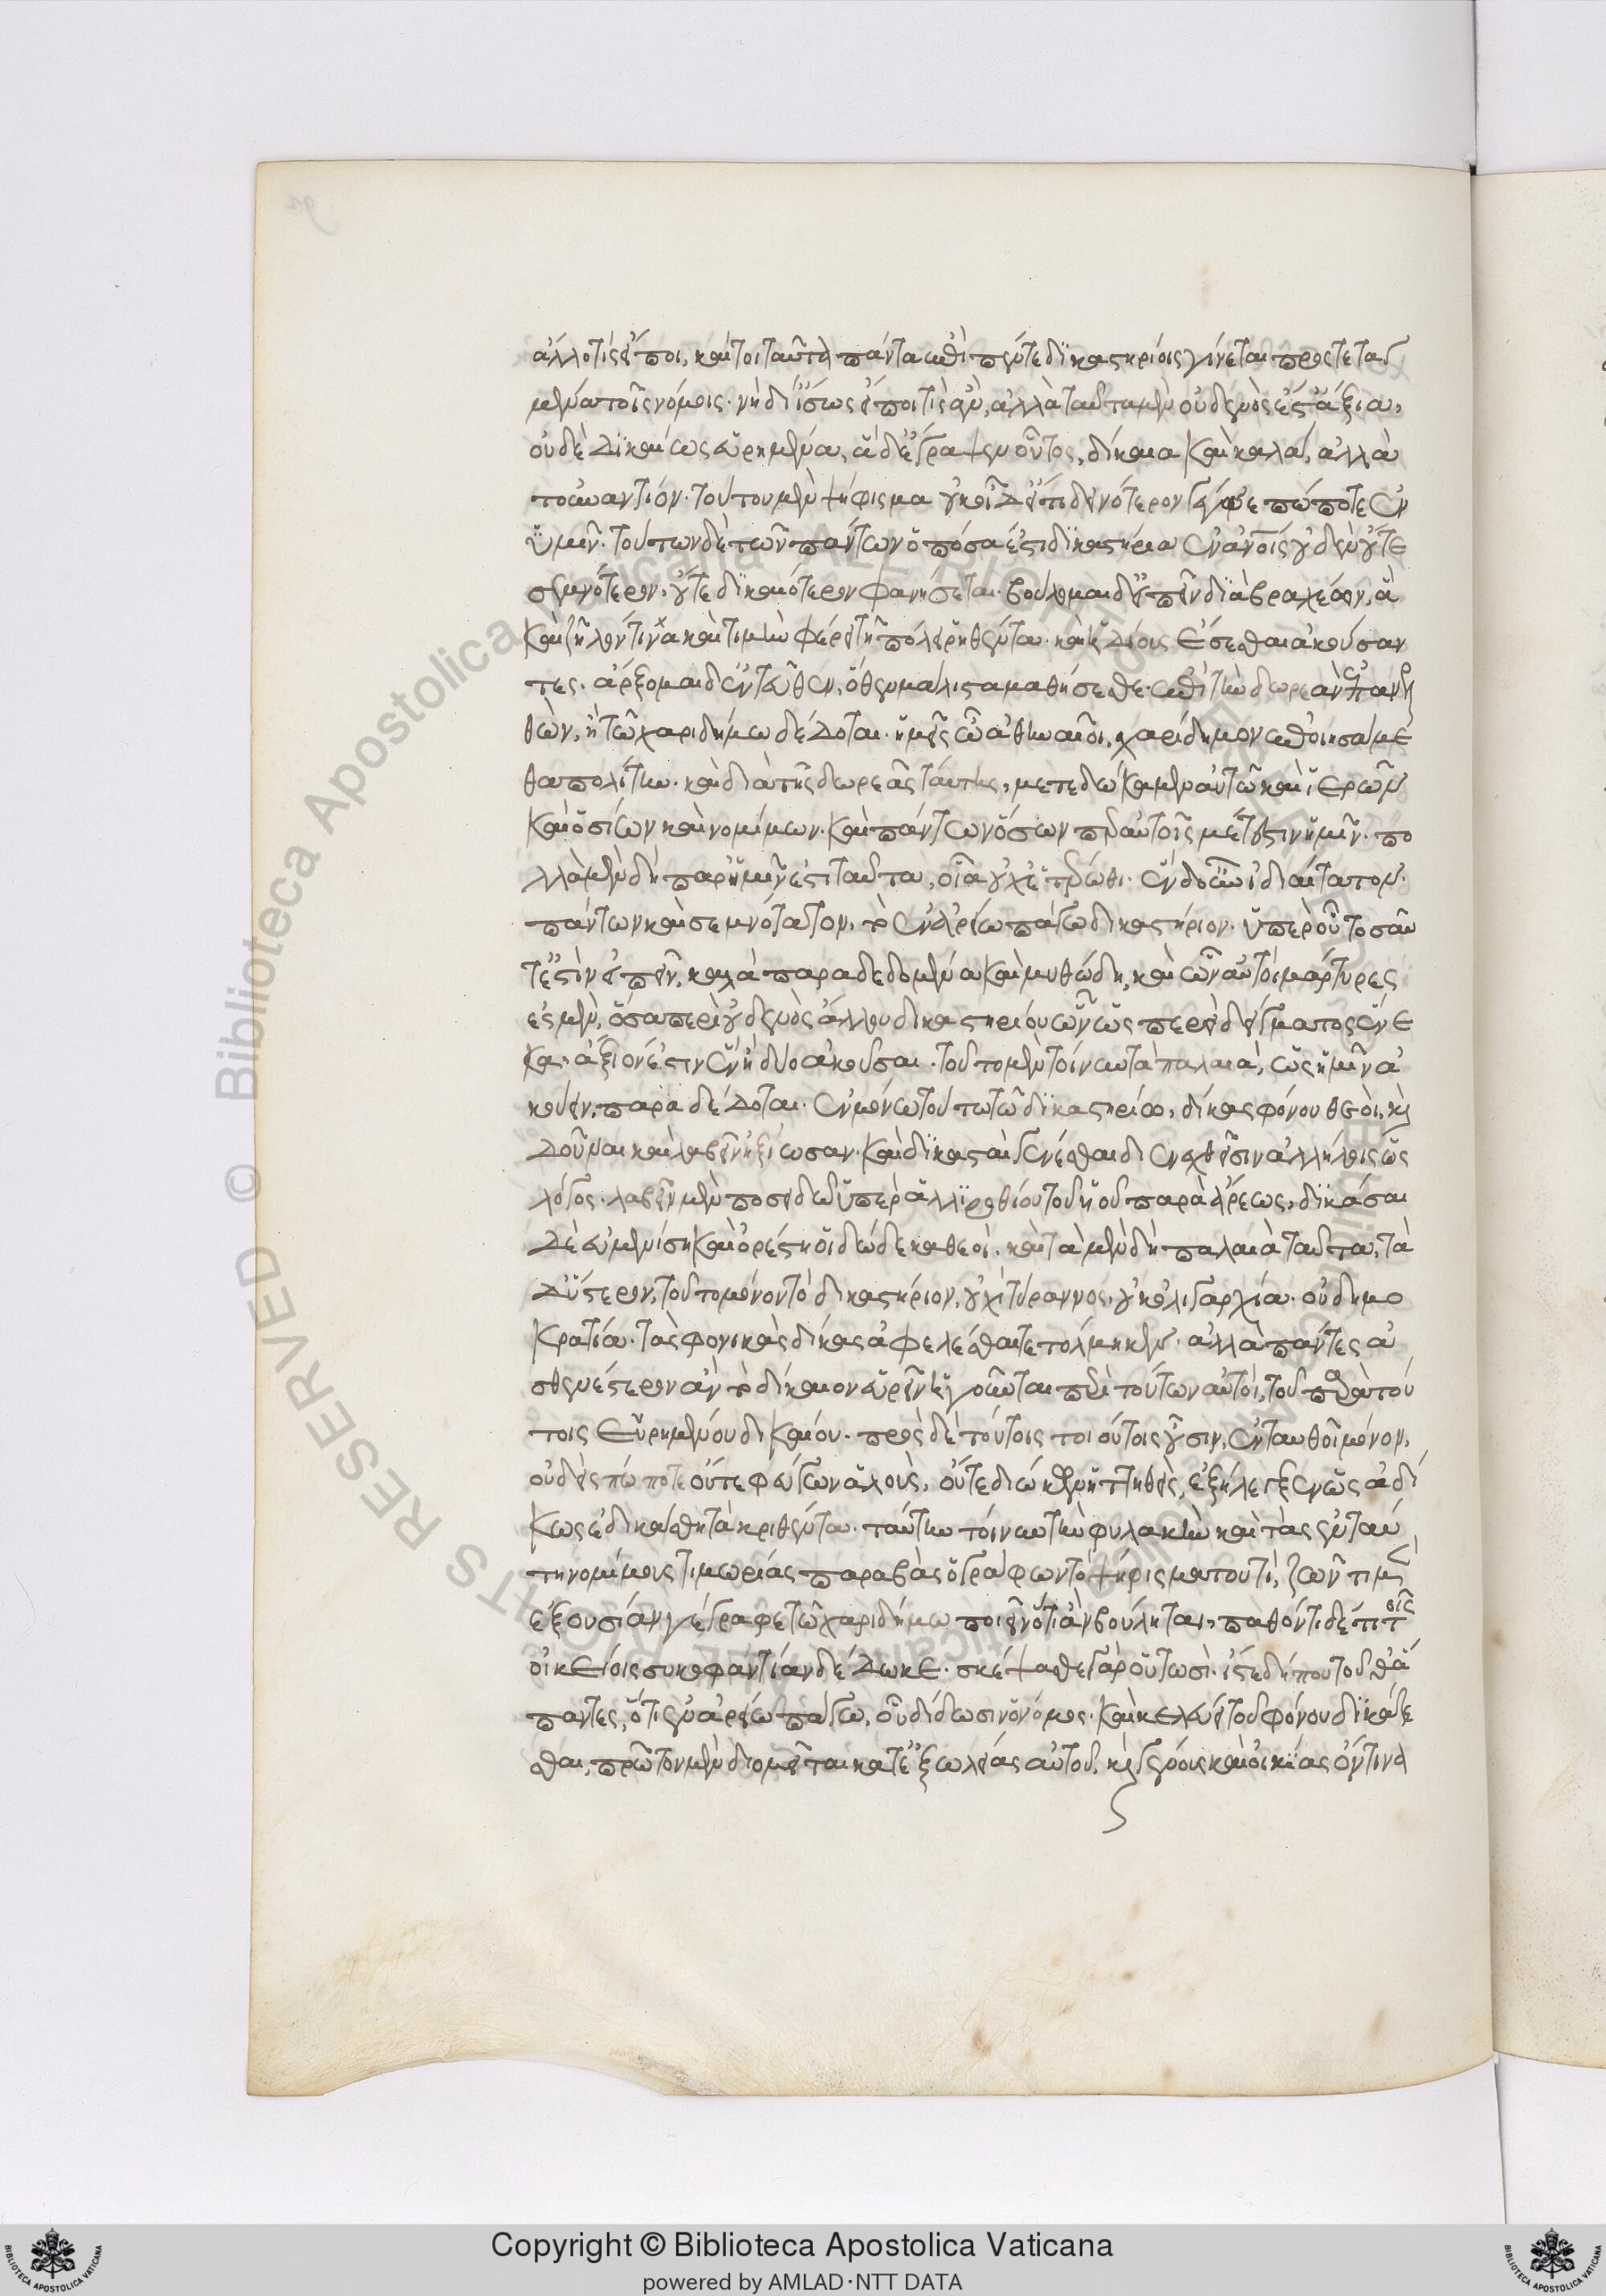 ἄλλό τις εἴποι. καίτοι ταῦτα πάντα ἐπὶ πέντε δικαστηρίοις γίνεται προστεταγ
μένα τοῖς νόμοις. νὴ δί ἴσως εἴποι τις ἂν, ἀλλὰ ταῦτα μὲν οὐδενός ἐστ' ἄξια,
οὐδὲ δικαίως εὑρημένα, ἃ δ' ἔγραψεν οὗτος, δίκαια καὶ καλά, ἀλλὰ
τοὐναντίον. τούτου μὲν ψήφισμα οὐκ οἶδ' εἴ τι δεινότερον γέγονε πώποτε ἐν
ὑμῖν. τούτων δὲ τῶν πάντων ὁπόσα ἐστὶ δικαστήρια ἐν ἀν͂οις οὐδὲν οὔτε
σεμνότερον, οὔτε δικαιότερον φανήσεται. βούλομαι δ' εἰπεῖν διὰ βραχέων, ἃ
καὶ ζῆλόν τινα καὶ τιμὴν φέρει τῇ πόλει ῥηθέντα. καὶ ἡδίους ἔσεσθαι ἀκούσαν
τες. ἄρξομαι δ' ἐντεῦθεν, ὅθεν μάλιστα μαθήσεσθε. ἐπὶ τὴν δωρεὰν ἐπανελ
θὼν, ἣ τῷ χαριδήμῳ δέδοται. ἡμεῖς ὦ ἀθηναῖοι, χαρίδημον ἐποιησάμε
θα πολίτην. καὶ διὰ τῆς δωρεᾶς ταύτης, μετεδώκαμεν αὐτῷ καὶ ἱερῶν
καὶ ὁσίων καὶ νομίμων. καὶ πάντων ὅσων περ αὐτοῖς μέτεστιν ἡμῖν. πο
λλὰ μὲν δὴ παρ' ἡμῖν ἐστι ταῦτα, οἷα οὐχ ἑτέρωθι. ἓν δ' οὖν ἰδιαίτατον
πάντων καὶ σεμνότατον, τὸ ἐν ἀρείῳ πάγῳ δικαστήριον. ὑπὲρ οὗ τοσαῦ
τ' ἔστιν εἰπεῖν, καλὰ παραδεδομένα καὶ μυθώδη, καὶ ὧν αὐτοὶ μάρτυρες
ἐσμὲν, ὅσα περὶ οὐδενὸς ἄλλου δικαστηρίου. ὧν ὡσπερεὶ δείγματος ἕνε
κα, ἄξιόν ἐστιν ἓν ἢ δύο ἀκοῦσαι. τοῦτο μὲν τοίνυν τὰ παλαιὰ, ὡς ἡμῖν ἀ
κούειν παραδέδοται. ἐν μόνῳ τούτῳ τῷ δικαστηρίῳ, δίκας φόνου θεοὶ, καὶ
δοῦναι καὶ λαβεῖν ἠξίωσαν. καὶ δικασταὶ γενέσθαι διενεχθεῖσιν ἀλλήλοις ὡς
λόγος. λαβεῖν μὲν ποσειδῶν ὑπὲρ ἁλλιρροθίου τοῦ υἱοῦ παρὰ ἄρεως, δικάσαι
δὲ εὐμενίσι καὶ ὀρέστῃ οἱ δώδεκα θεοί. καὶ τὰ μὲν δὴ παλαιὰ ταῦτα, τὰ
δ' ὕστερον, τοῦτο μόνον τὸ δικαστήριον, οὐχὶ τύραννος, οὐκ ὀλιγαρχία. οὐ δημο
κρατία. τὰς φονικὰς δίκας ἀφελέσθαι τετόλμηκεν. ἀλλὰ πάντες ἀ
σθενέστερον ἂν τὸ δίκαιον εὑρεῖν ἡγοῦνται περὶ τούτων αὐτοὶ, τοῦ παρὰ τού
τοις εὑρημένου δικαίου. πρὸς δὲ τούτοις τοιούτοις οὖσιν, ἐνταυθοῖ μόνον,
οὐδεὶς πώποτε οὔτε φεύγων ἁλοὺς, οὔτε διώκων ἡττηθεὶς, ἐξήλεγξεν ὡς ἀδί
κως ἐδικάσθη τὰ κριθέντα. ταύτην τοίνυν τὴν φυλακὴν καὶ τὰς ἐν ταύ
τῃ νομίμους τιμωρίας παραβὰς ὁ γράφων τὸ ψήφισμα τουτὶ, ζῶντι μὲν
ἐξουσίαν γέγραφε τῷ χαριδήμῳ ποιεῖν ὅτι ἂν βούληται, παθόντι δέ τι τοῖς
οἰκείοις συκοφαντίαν δέδωκε. σκέψασθε γὰρ οὑτωσί. ἴστε δήπου τοῦθ' ἅ
παντες, ὅτι ἐν ἀρείῳ πάγῳ, οὗ δίδωσιν ὁ νόμος. καὶ κελεύει τοῦ φόνου δικάζε
σθαι, πρῶτον μὲν διομεῖται κατ' ἐξωλείας αὐτοῦ, καὶ γένους καὶ οἰκίας ὅντινα
Copyright © Biblioteca Apostolica Vaticana
powered by AMLAD·NTT DATA